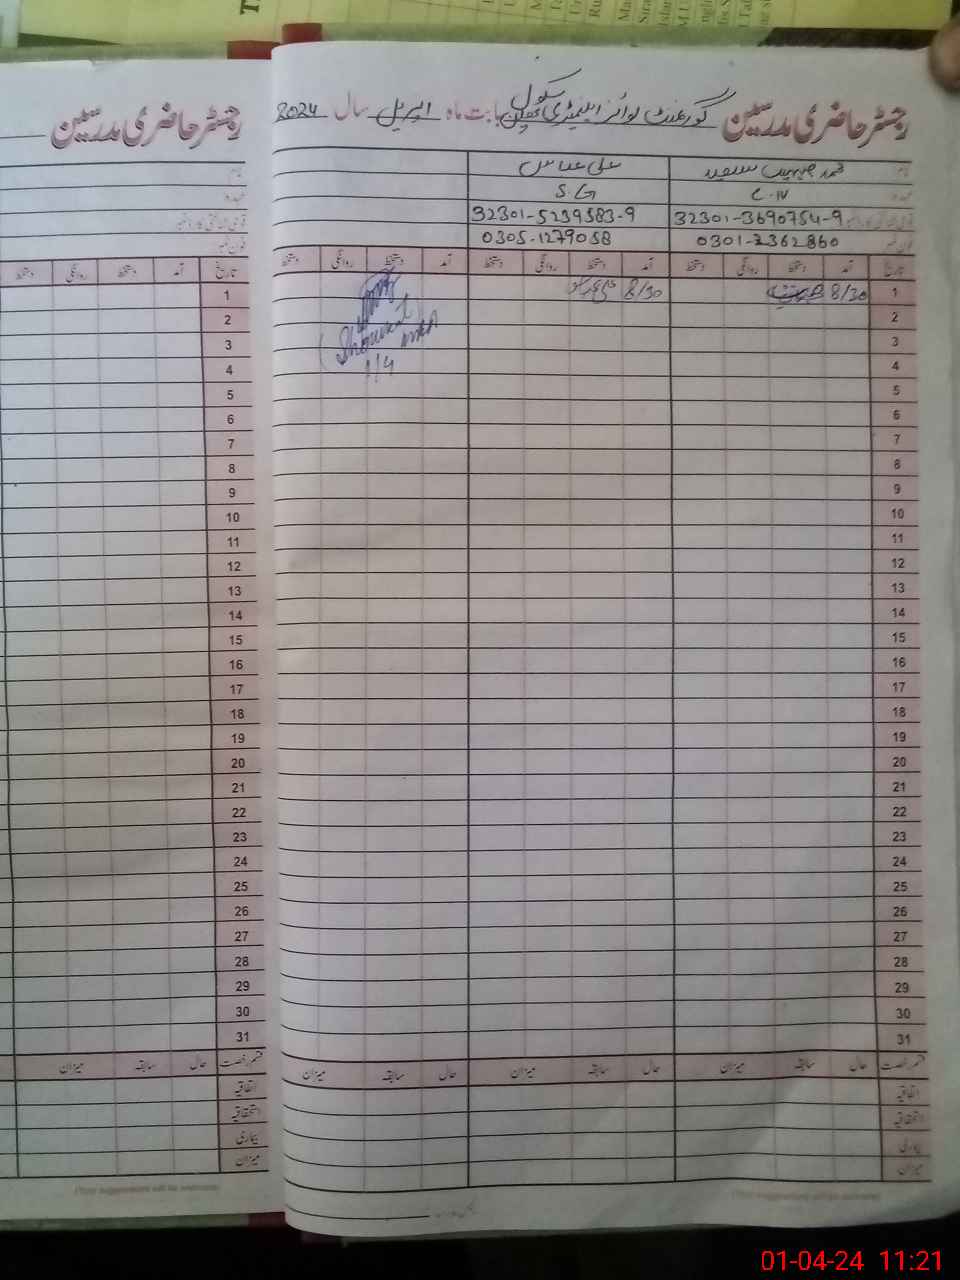 رجسٹر حاضری مدرسین گورنمنٹ بوائز ایلیمنٹری سکول بابت ماہ اپریل سال 2024
رجسٹر حاضری مدرسین
نام علی عباس
عہدہ C.IV S.G
قومی شناختی کارڈ نمبر 32301-3690754-9 32301-5239583-9
فون نمبر 0301-2362860 0305-1279058
تاریخ آمد دستخط روانگی دستخط آمد دستخط روانگی دستخط آمد دستخط روانگی دستخط
تاریخ آمد دستخط روانگی دستخط
1 8/30 8/30
2
3
4
5
6
7
8
9
10
11
12
13
14
15
16
17
18
19
20
21
22
23
24
25
26
27
28
29
30
31
Shaukat
1/4
1
2
3
4
5
6
7
8
9
10
11
12
13
14
15
16
17
18
19
20
21
22
23
24
25
26
27
28
29
30
31
قسم رخصت حال سابقہ میزان حال سابقہ میزان حال سابقہ میزان
اتفاقیہ
استحقاقیہ
بیماری
میزان
قسم رخصت حال سابقہ میزان
اتفاقیہ
استحقاقیہ
بیماری
میزان
01-04-24 11:21